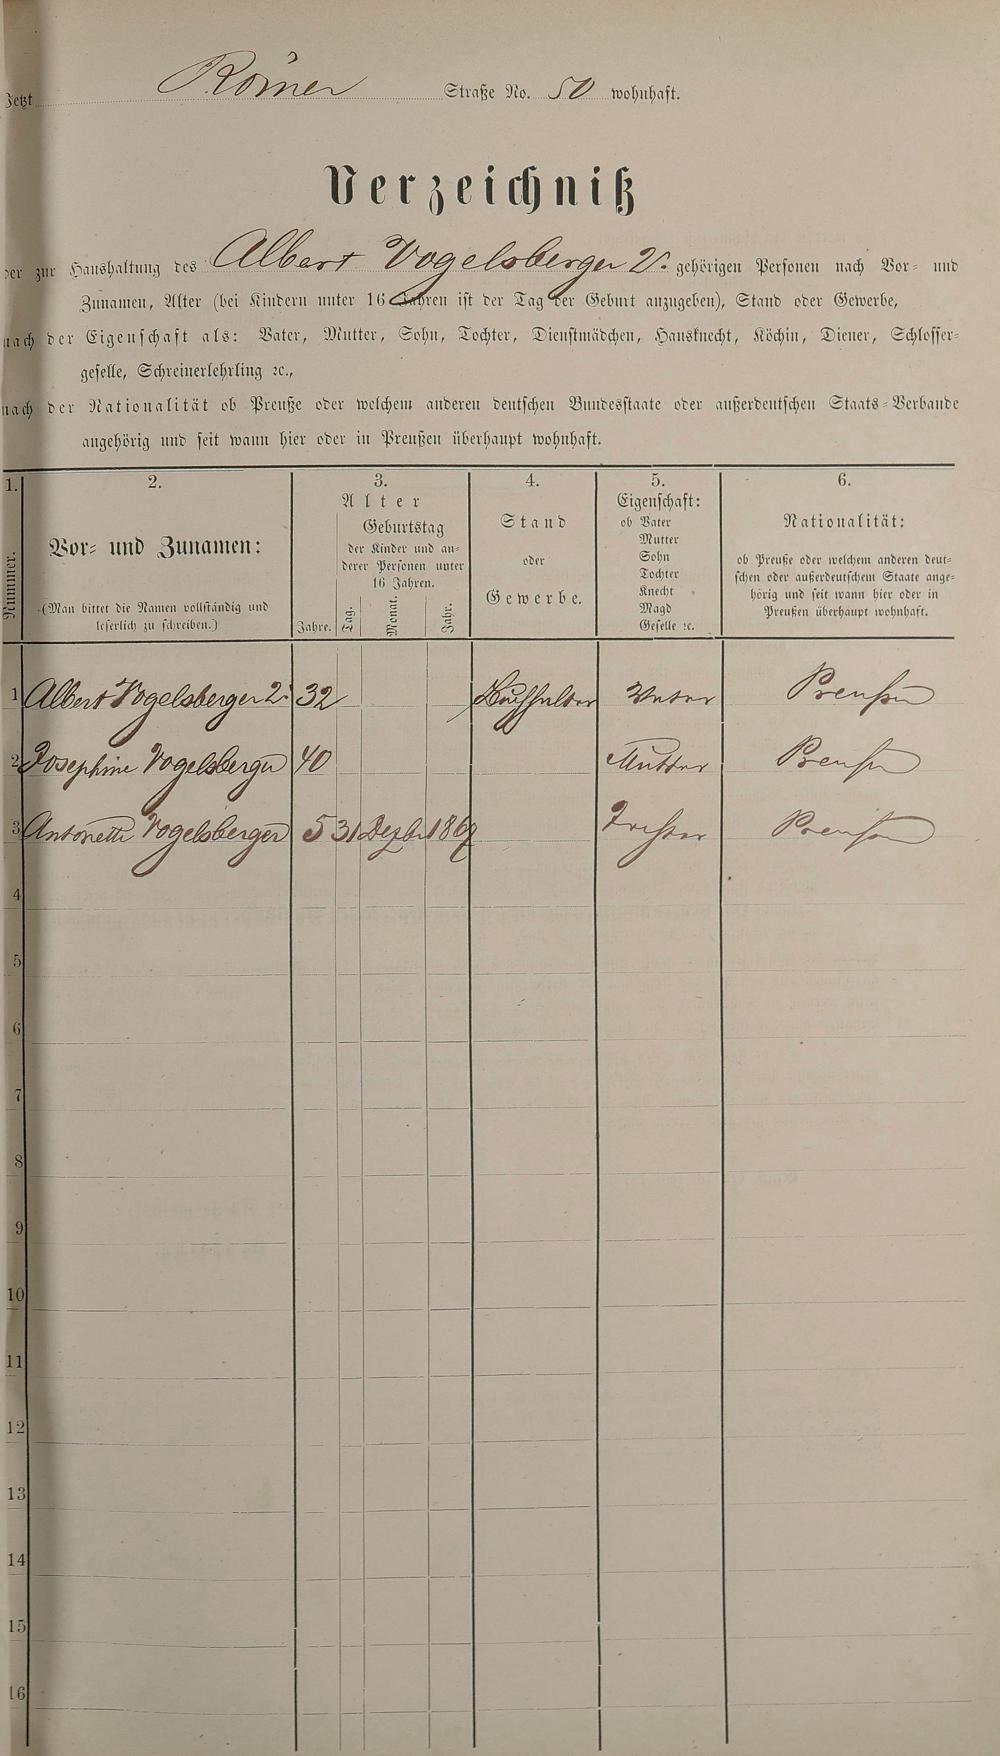 Jetzt Römer Straße No. 50 wohnhaft.
Verzeichniß
der zur Haushaltung des Albert Vogelsberger 2. gehörigen Personen nach Vor- und
Zunamen, Alter (bei Kindern unter 16 Jahren ist der Tag der Geburt anzugeben), Stand oder Gewerbe,
nach der Eigenschaft als: Vater, Mutter, Sohn, Tochter, Dienstmädchen, Hausknecht, Köchin, Diener, Schlosser-
geselle, Schreinerlehrling ꝛc.,
nach der Nationalität ob Preuße oder welchem anderen deutschen Bundesstaate oder außerdeutschen Staats-Verbande
angehörig und seit wann hier oder in Preußen überhaupt wohnhaft.
1. 2. 3. 4. 5. 6.
Nummer.
Vor- und Zunamen:
(Man bittet die Namen vollständig und
leserlich zu schreiben.)
Alter
Geburtstag
der Kinder und an-
derer Personen unter
16 Jahren.
Jahre. Tag. Monat. Jahr.
Stand
oder
Gewerbe.
Eigenschaft:
ob Vater
Mutter
Sohn
Tochter
Knecht
Magd
Geselle ꝛc.
Nationalität:
ob Preuße oder welchem anderen deut-
schen oder außerdeutschem Staate ange-
hörig und seit wann hier oder in
Preußen überhaupt wohnhaft.
1 Albert Vogelsberger 2. 32 Buchhalter Vater Preußen
2 Josephine Vogelsberger 40 Mutter Preußen
3 Antonette Vogelsberger 5 31 Dezbr 1867 Tochter Preußen
4
5
6
7
8
9
10
11
12
13
14
15
16